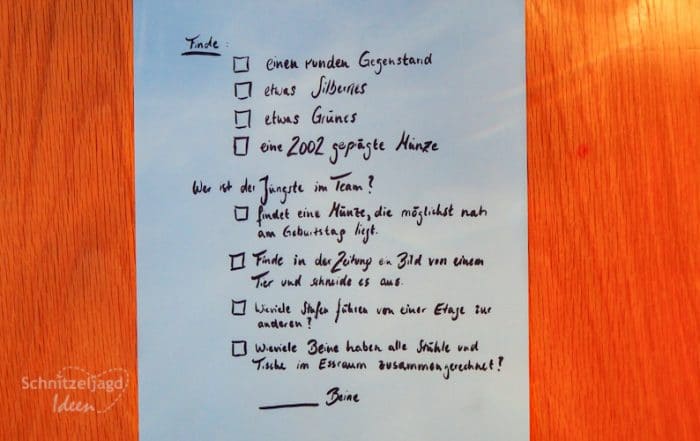 Finde:
einen runden Gegenstand
etwas Silbernes
etwas Grünes
eine 2002 geprägte Münze
Wer ist der Jüngste im Team?
findet eine Münze, die möglichst nah
am Geburtstag liegt.
Finde in der Zeitung ein Bild von einem
Tier und schneide es aus.
Wieviele Stufen führen von einer Etage zur
anderen?
Wieviele Beine haben alle Stühle und
Tische im Essraum zusammengerechnet?
______ Beine
Schnitzeljagd
Ideen